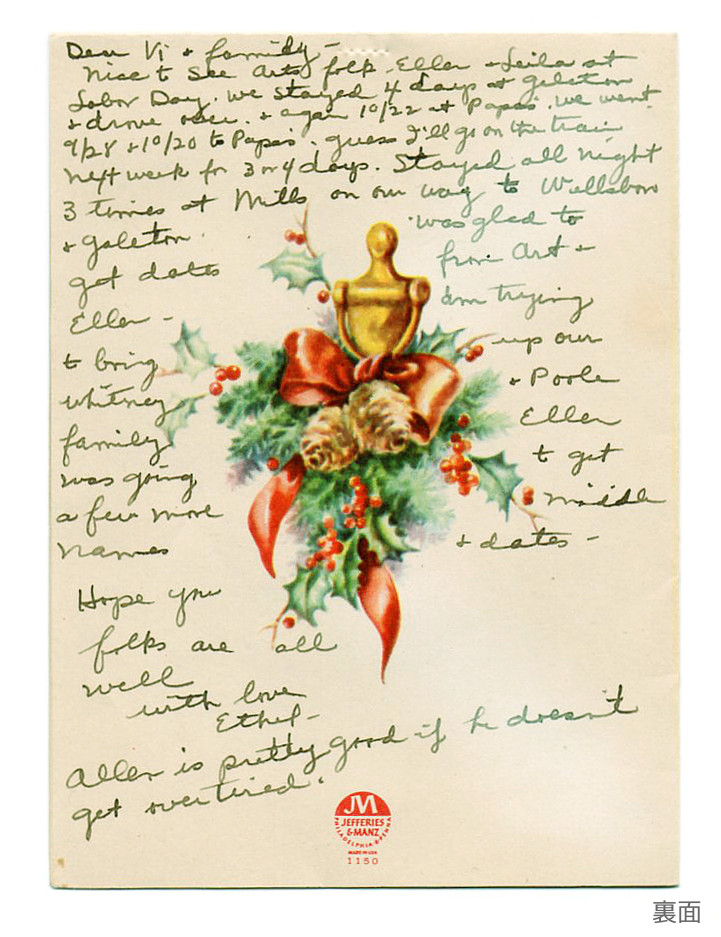 Dear Vi + family -
Nice to see Arts folk - Ellen + Leila at
Labor Day. We stayed 4 days at Galeton
+ drove over. + again 10/22 at Papas. We went
9/28 + 10/20 to Papas. guess I'll go on the train
next week for 3 or 4 days. Stayed all night
3 times at Mills on our way to Wellsboro
+ Galeton. was glad to
get dates from Art +
Ellen - Am trying
to bring up our
Whitney + Poole
family Ellen
was going to get
a few more middle
names + dates -
Hope you
folks are all
well
with love
Ethel -
Allen is pretty good if he doesn't
get overtired.
JM
JEFFERIES
& MANZ
PHILADELPHIA PENNA
MADE IN USA
1150
裏面